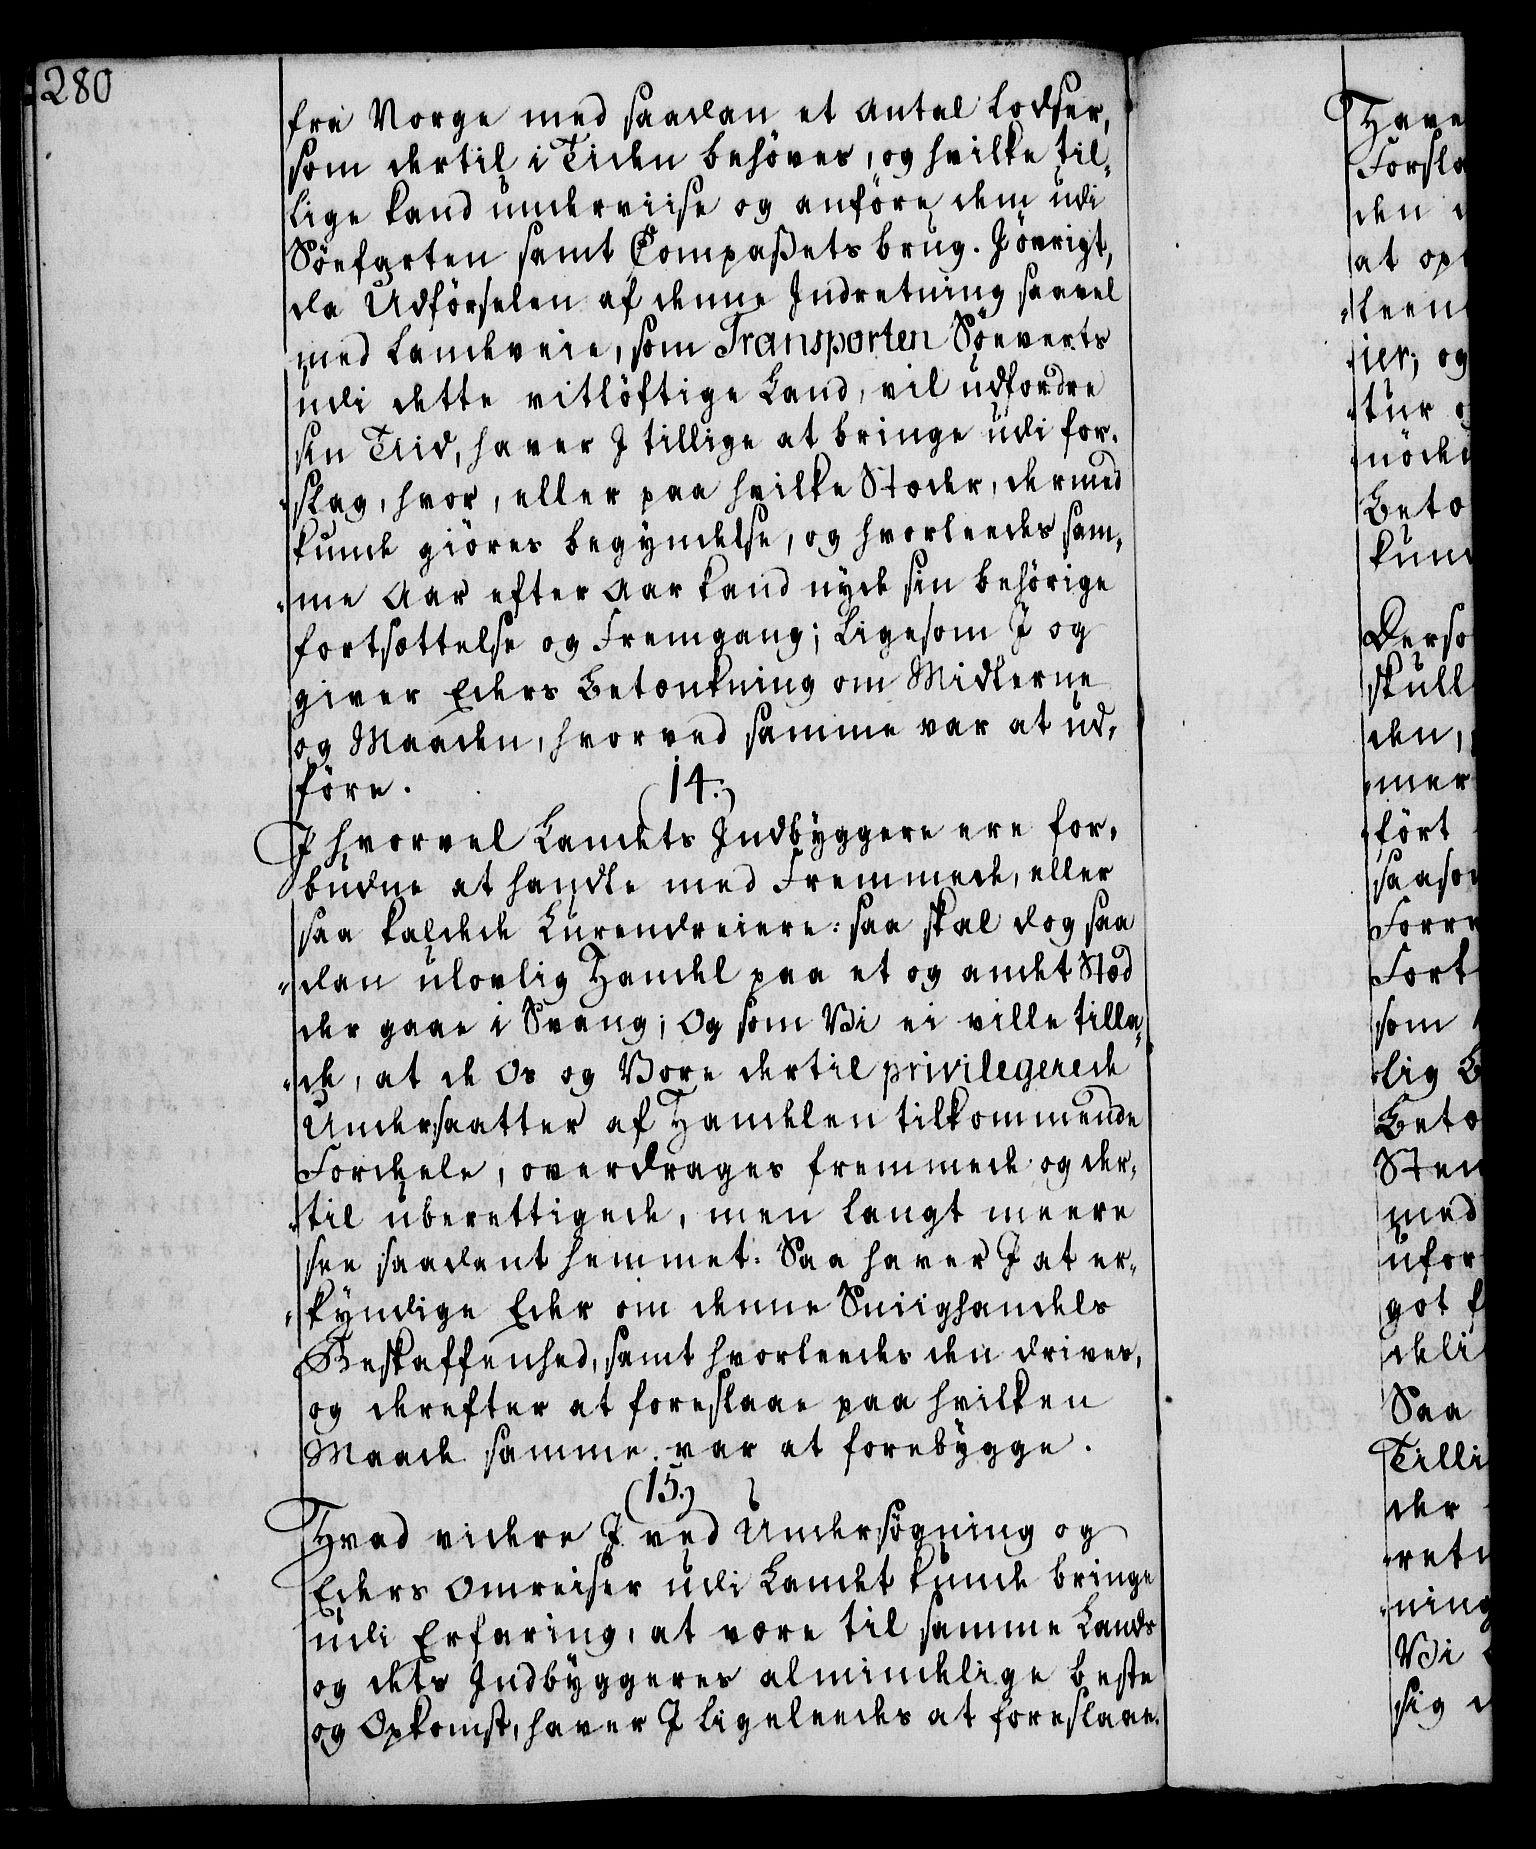 280
fra Norge med saadan et antal Lodser,
som dertil i Tiden behöves, og hvilke til-
lige kand underviise og anföre dem udi
Söefarten samt Compaßets brug. Jövrigt,
da Udförselen af denne Indretning saavel
med Landeveie, som Transporten Söeverts
udi dette vitlöftige Land, vil udfordre
sin Tiid, haver J tillige at bringe udi for-
slag, hvor, eller paa hvilke Stæder, dermed
kunde giöres begyndelse, og hvorleedes sam-
me Aar efter Aar kand nyde sin behörige
fortsættelse og Fremgang; Ligesom J og
giver Eders Betænkning om Midlerne
og Maaden, hvorved samme var at ud-
före.
14.)
J hvorvel Landets Indbyggere ere for-
budne at handle med Fremmede, eller
saa kaldede Lurendreiere: saa skal dog saa
dan ulovlig Handel paa et og andet Stæd
der gaae i Svang; Og som Vi ei ville tilla-
de, at de Os og Vore dertil privilegerede
Undersaatter af Handelen tilkommende
Fordeele, overdrages fremmede og der-
til uberettigede, men langt meere
see saadant hemmet: Saa haver J at er-
kyndige Eder om denne Sniighandels
Beskaffenhed, samt hvorleedes den drives,
og derefter at foreslaae paa hvilken
Maade samme var at forebygge.
(15.)
Hvad videre J ved Undersøgning og
Eders Omreiser udi Landet kunde bringe
udi Erfaring, at være til samme Lands
og dets Indbyggeres almindelige beste
og Opkomst, haver J ligeleedes at foreslaae.
Have
Forsla
den
at op
leen
ier; og
tur
nöde
Betæ
kun
Derso
skull
den,
mer
fört
saaso
Forre
Fort
som
lig B
Betæ
Sten
med
ufor
got f
deli
Saa
Tilli
der
ret
ning
Vi
sig